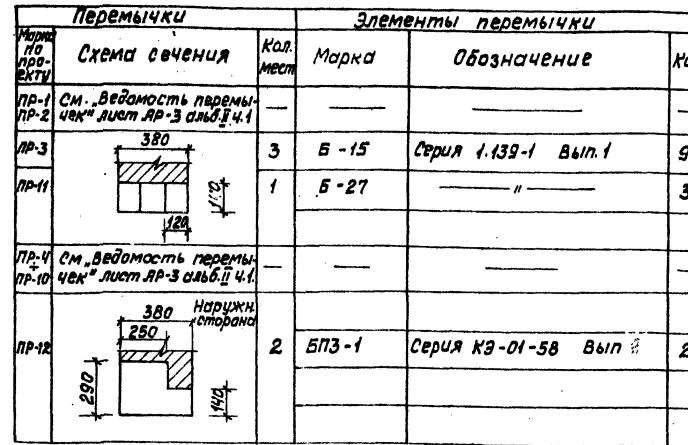 Перемычки
Элементы перемычки
Марка по проекту
Схема сечения
Кол. мест
Марка
Обозначение
ПР-1
ПР-2
См. „Ведомость перемы-
чек" лист АР-3 альб. II ч.1
—
—
—
ПР-3
380
3
Б-15
Серия 1.139-1 Вып.1
9
ПР-11
120
1
Б-27
— " —
3
ПР-4
÷
ПР-10
См „Ведомость перемы-
чек" лист АР-3 альб. II ч.1.
—
—
—
ПР-12
380
250
Наружн.
сторона
290
140
2
БП3-1
Серия КЭ-01-58 Вып
2